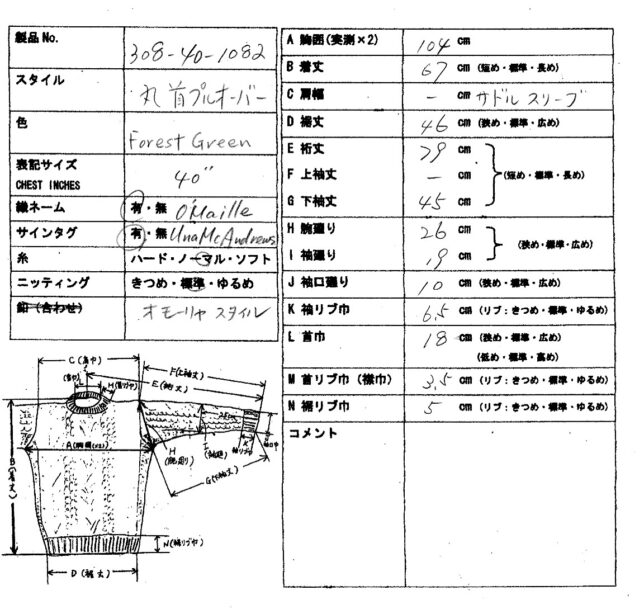 製品No.
308-40-1082
スタイル
丸首プルオーバー
色
Forest Green
表記サイズ
CHEST INCHES
40"
織ネーム
有・無 O'Maille
サインタグ
有・無 Una McAndrews
糸
ハード・ノーマル・ソフト
ニッティング
きつめ・標準・ゆるめ
釦(合わせ)
オモーリャ スタイル
A 胸囲(実測×2)
104 cm
B 着丈
67 cm (短め・標準・長め)
C 肩幅
- cm サドルスリーブ
D 裾丈
46 cm (狭め・標準・広め)
E 裄丈
79 cm
F 上袖丈
- cm (短め・標準・長め)
G 下袖丈
45 cm
H 腕廻り
26 cm
I 袖廻り
19 cm (狭め・標準・広め)
J 袖口廻り
10 cm (狭め・標準・広め)
K 袖リブ巾
6.5 cm (リブ:きつめ・標準・ゆるめ)
L 首巾
18 cm (狭め・標準・広め)
(低め・標準・高め)
M 首リブ巾(襟巾)
3.5 cm (リブ:きつめ・標準・ゆるめ)
N 裾リブ巾
5 cm (リブ:きつめ・標準・ゆるめ)
コメント
C(肩巾)
F(上袖丈)
E(裄丈)
L
(首巾)
A(胸囲(×2))
B(着丈)
H
(腕廻り)
I
K
袖リブ巾
G(下袖丈)
N(裾リブ巾)
D(裾丈)